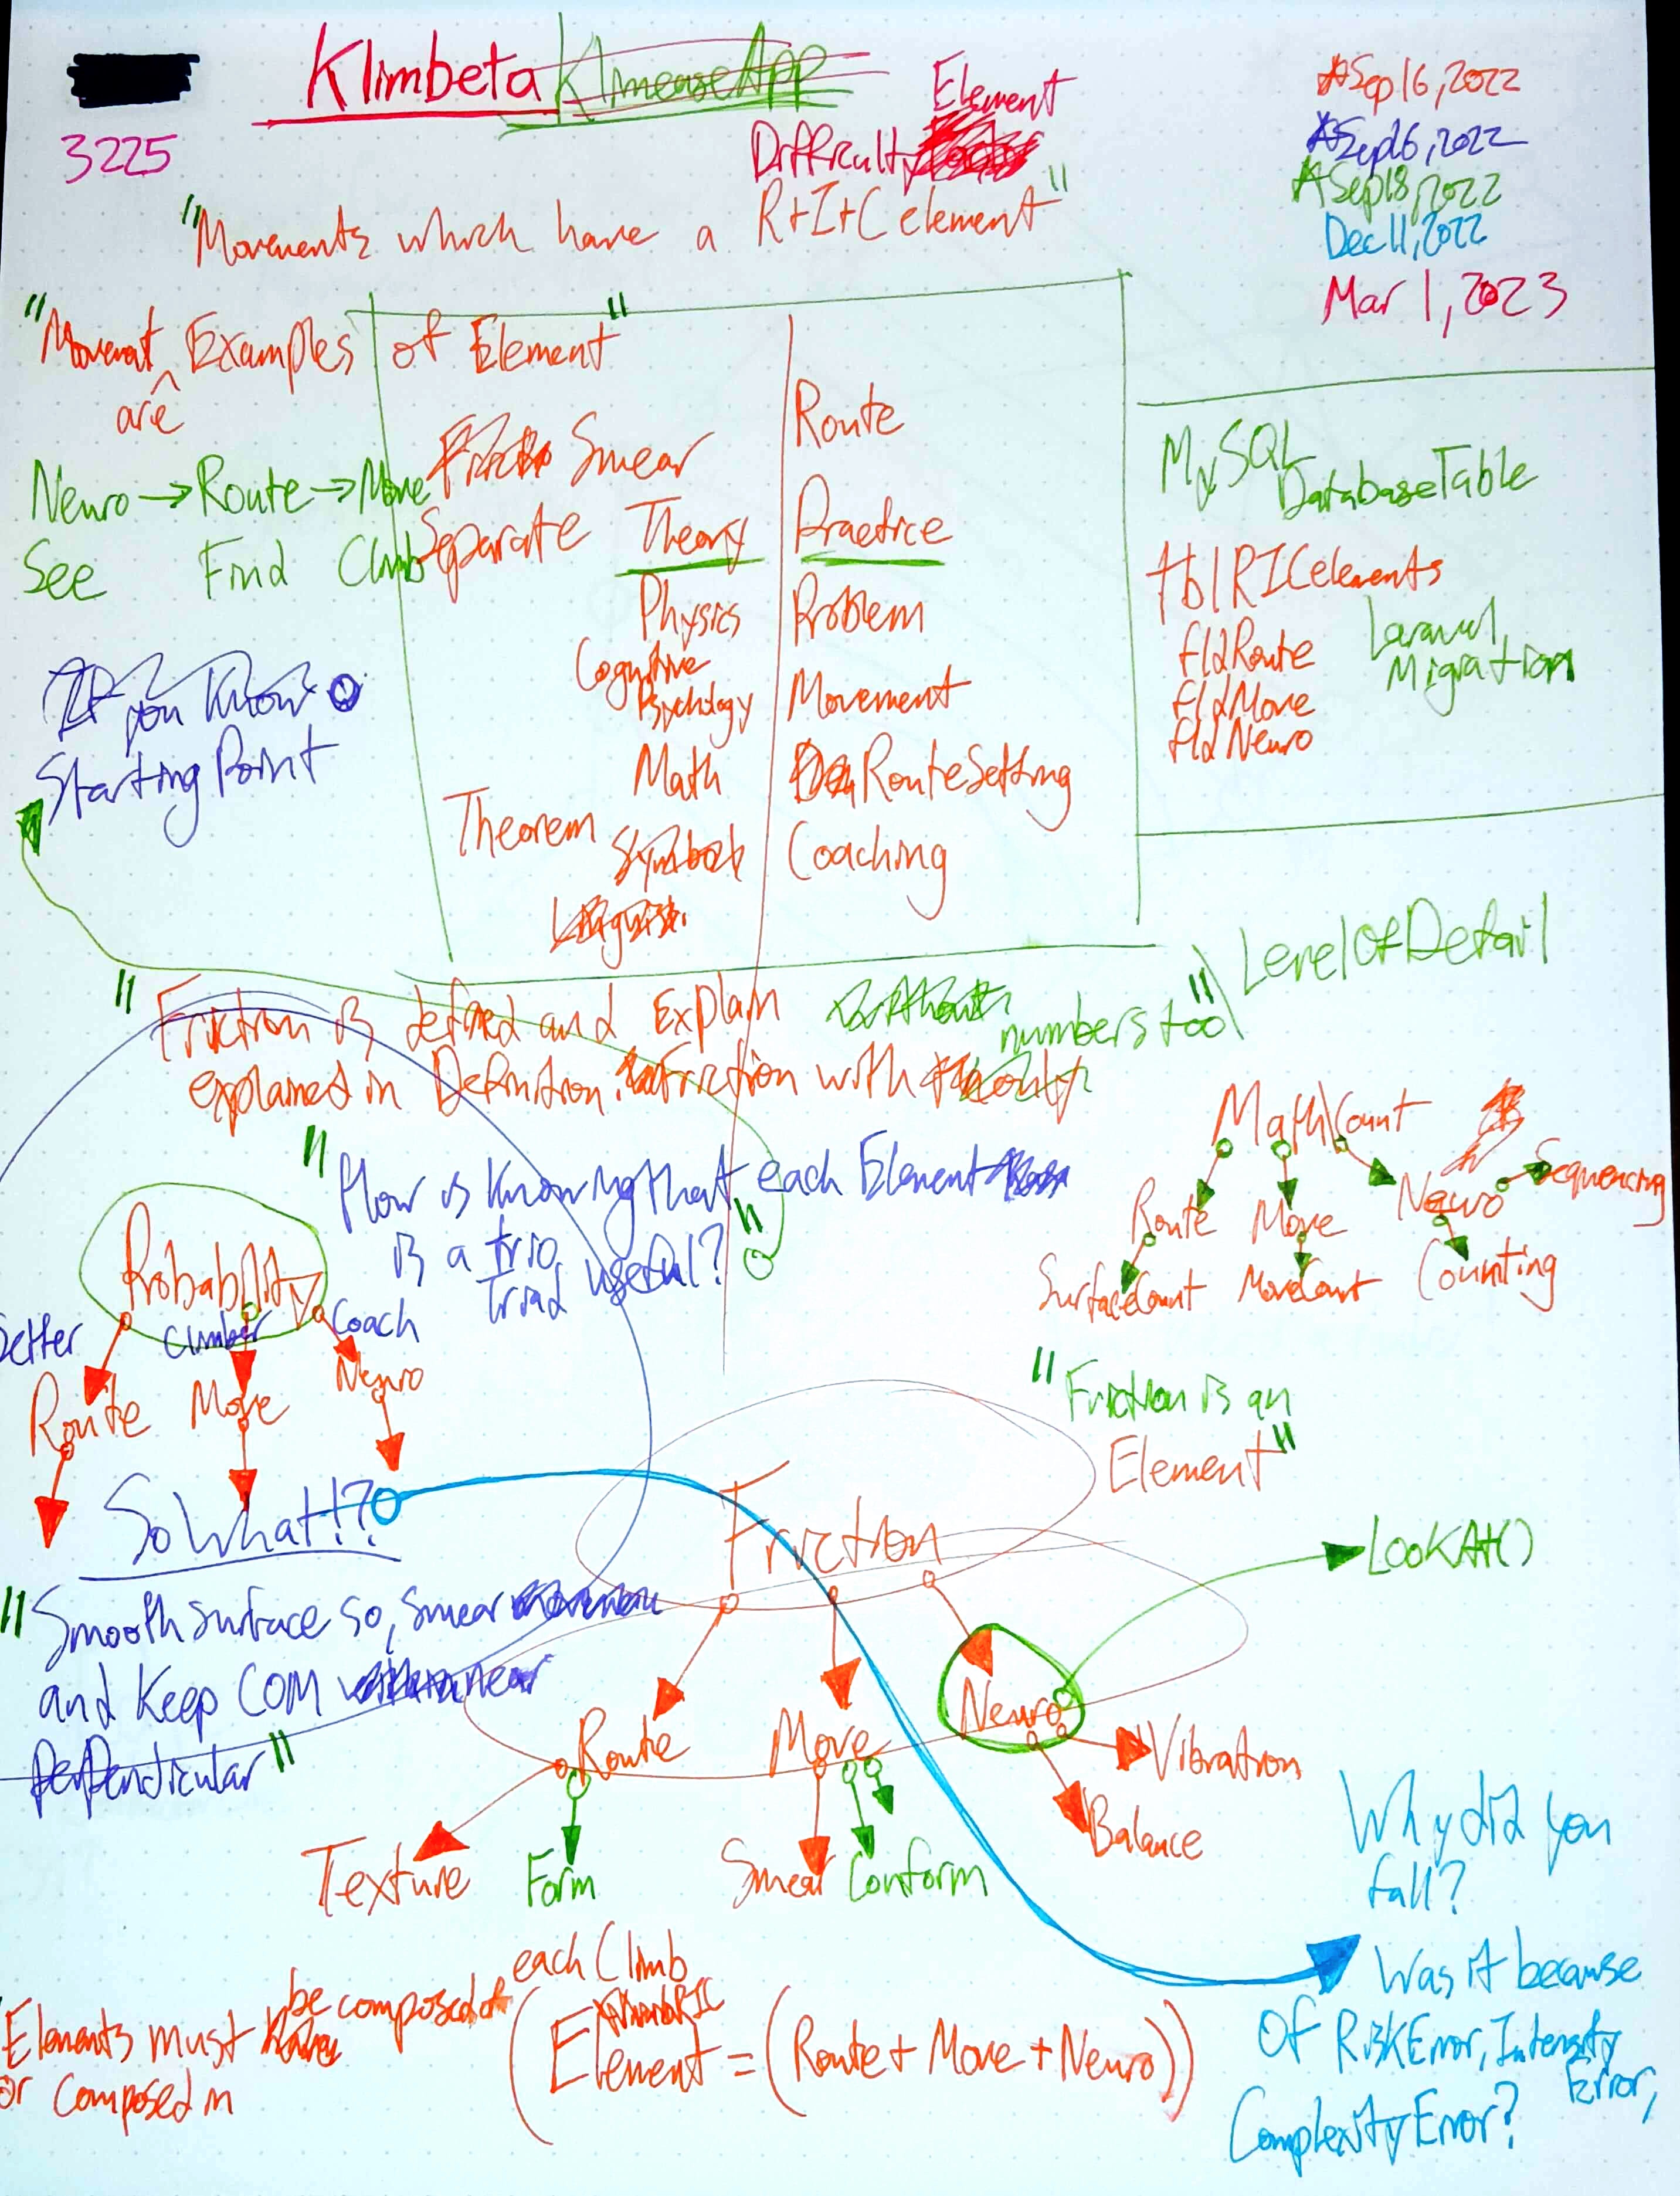 Klimbeta KlimeaseApp
3225
Element
Difficulty
"Movements which have a R+I+C element"
Sep 16, 2022
Sep 16, 2022
Sep 18, 2022
Dec 11, 2022
Mar 1, 2023
"Movement Examples of Element"
are
Neuro → Route → Move
See Find Climb
If you know
Starting Point
Smear
Separate Theory
Physics
Cognitive
Psychology
Math
Theorem Symbols
Route
Practice
Problem
Movement
RouteSetting
Coaching
MySQL
DatabaseTable
tblRICelements
fldRoute
fldMove
fldNeuro
Laravel
Migration
LevelOfDetail
"Friction is defined and Explain without numbers too"
explained in Definition. Friction with
"How is knowing that each Element
is a trio useful?"
Triad
Probability
Setter Climber Coach
Route Move Neuro
So What!??
"Smooth surface so, smear
and Keep COM near
perpendicular"
Math Count
Route Move Neuro Sequencing
SurfaceCount MoveCount Counting
"Friction is an
Element"
Friction
LookAt()
Route Move Neuro
Vibration
Balance
Texture Form Smear Conform
Why did you
fall?
Was it because
Of RiskError, Intensity
Error,
ComplexityError?
each Climb
Elements must be composed of
or composed in
(Element = (Route + Move + Neuro))